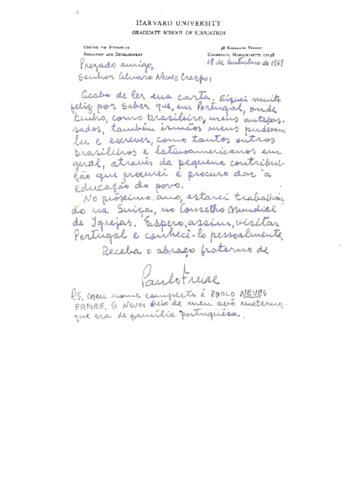 HARVARD UNIVERSITY
GRADUATE SCHOOL OF EDUCATION
CENTER FOR STUDIES IN
EDUCATION AND DEVELOPMENT
38 KIRKLAND STREET
CAMBRIDGE, MASSACHUSETTS 02138
Prezado amigo,
18 de 1969
Senhor Alvaro Neves Crespo:
Acabo de ler sua carta. Fiquei muito
feliz por saber que, em Portugal, onde
tenho, como brasileiro, meus antepas-
sados, também irmãos meus puderam
ler e escrever, como tantos outros
brasileiros e latinoamericanos em
geral, através da pequena contribui-
ção que procurei e procuro dar à
educação do povo.
No próximo ano, estarei trabalhan-
do na Suiça, no Conselho Mundial
de Igrejas. Espero, assim, visitar
Portugal e conhecê-lo pessoalmente.
Receba o abraço fraterno de
Paulo Freire
P.S. Meu nome completo é PAULO NEVES
FREIRE. O Neves veio de meu avô materno,
que era de família portuguesa.